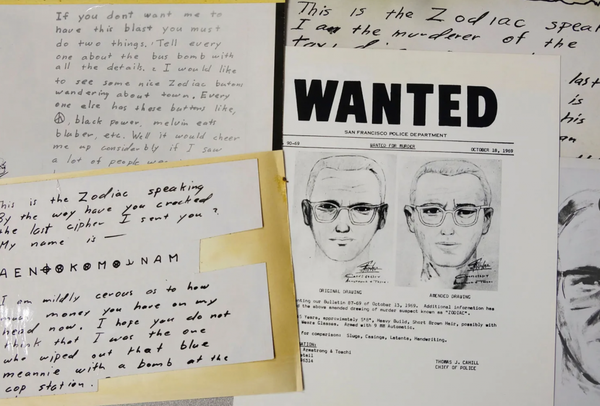 If you dont want me to
have this blast you must
do two things. Tell every
one about the bus bomb with
all the details. I would like
to see some nice Zodiac butons
wandering about town. Every
one else has these buttons like,
black power, melvin eats
bluber, etc. Well it would cheer
me up considerbly if I saw
a lot of people
This is the Zodiac
I am the murderer of the
last
is
his
This is the Zodiac speaking
By the way have you cracked
the last cipher I sent you?
My name is —
AEN⊕KMNAM
I am mildly cerous as to how
much money you have on my
head now. I hope you do not
think that I was the one
who wiped out that blue
meannie with a bomb at the
cop station.
WANTED
SAN FRANCISCO POLICE DEPARTMENT
90-69 WANTED FOR MURDER OCTOBER 18, 1969
ORIGINAL DRAWING AMENDED DRAWING
our Bulletin 87-69 of October 13, 1969. Additional information has
the above amended drawing of murder suspect known as "ZODIAC".
Years, approximately 5'8", Heavy Build, Short Brown Hair, possibly with
Wears Glasses. Armed with 9 MM Automatic.
for comparison: Slugs, Casings, Latents, Handwriting.
Armstrong & Toschi
THOMAS J. CAHILL
CHIEF OF POLICE